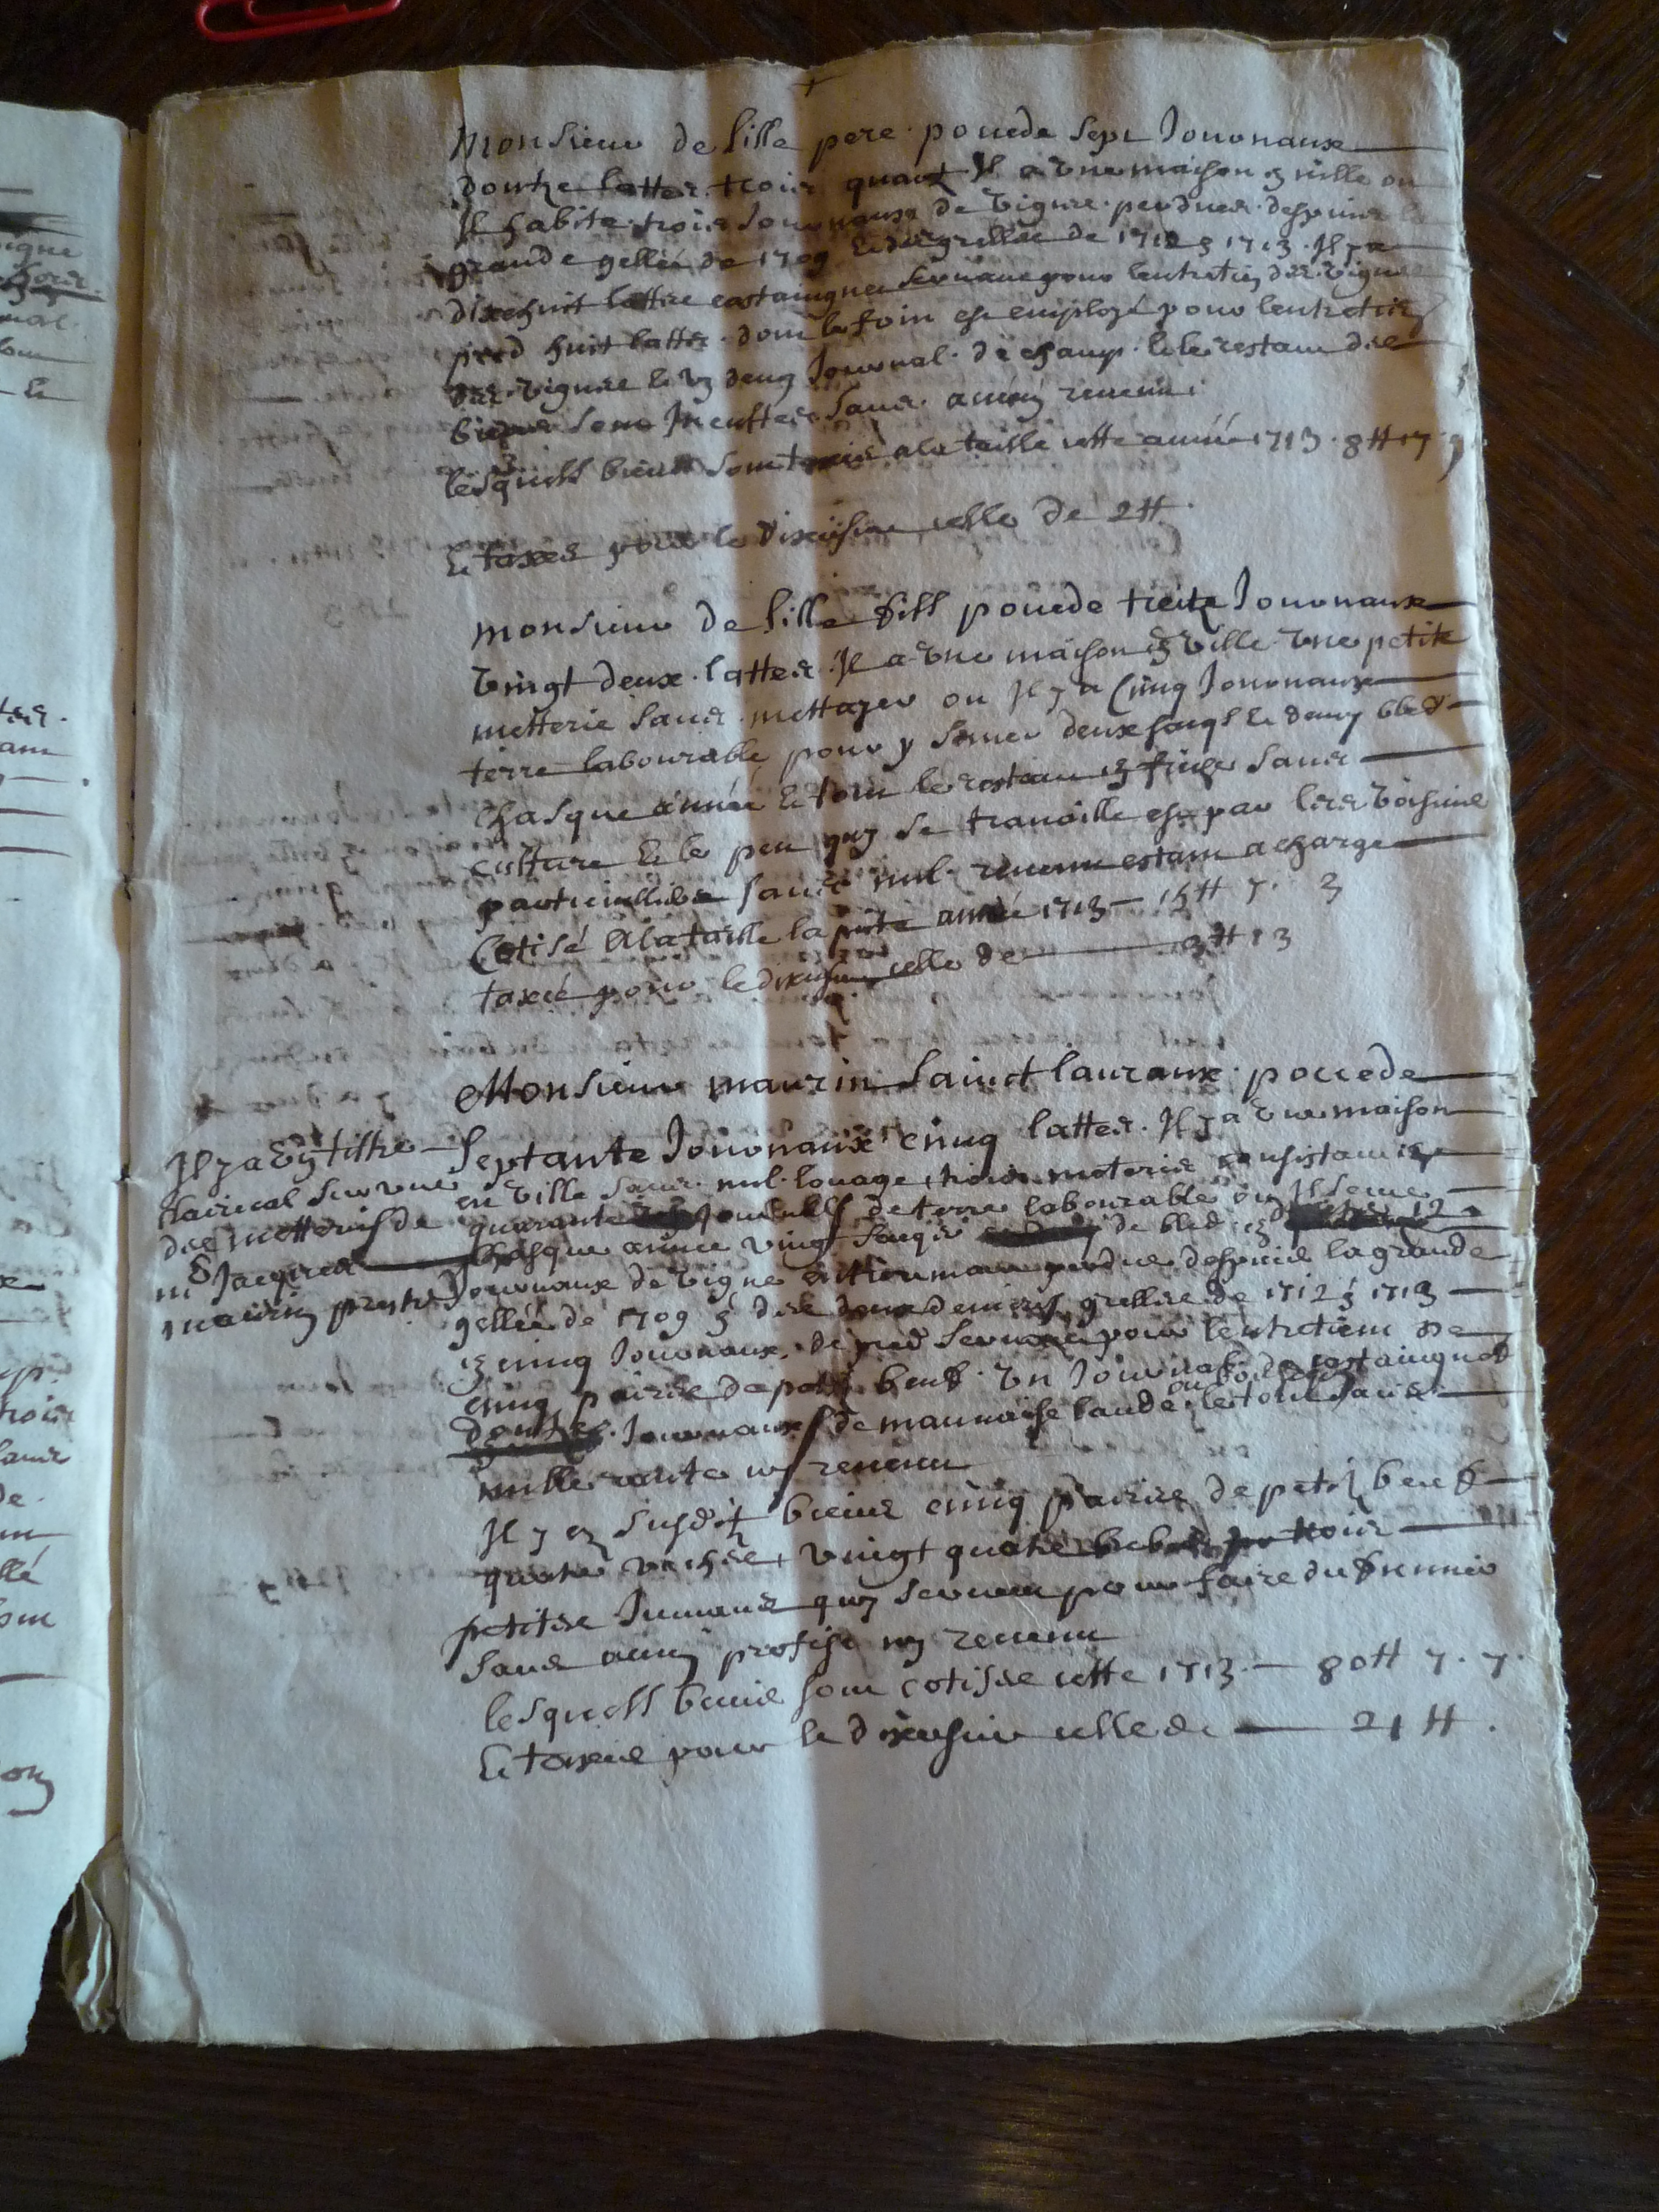 Monsieur de lille pere possede sept Journaux
doutze lattes trois quart Il a une maison en ville ou
Il habite trois Journaux de vigne perdues despuis la
grande gellée de 1709 et des gresles de 1712 & 1713 Il y a
dixehuit lattes castaingnes servant pour lentretien des vignes
pred huit lattes dont le foin est employé pour lentretien
des vignes et un demy Journal de champ et le restant des
biens sont Incultes sans aucun revenu
lesquels biens sont à la taille cette année 1713 8 ₶ 17 9
Et taxes pour le dixiesme celle de 2 ₶
monsieur de lille fils possede treitze Journaux
vingt deux lattes Il a une maison en ville une petite
metterie sans mettayer ou Il y a Cinq Journaux
terre labourable pour y semer deux sacqs et demy bled
chasque année et tout le restant en friche sans
culture et le peu quy se travaille est par les voisins
particulliers sans nul revenu estant a charge
Cotisé a la taille la pnte année 1713 — 15 ₶ 7 3
taxé pour le dixiesme celle de 3 ₶ 13
Monsieur maurin Sainct lauraux possede
Septante Journaux cinq lattes Il y a une maison
en ville sans nul louage, trois meteries consistant en
quarante Journals de terre labourable ou Il seme
chasque année vingt sacqs de bled en 12
Journaux de vigne entierement perdue despuis la grande
gellée de 1709 & des deux derniers gresles de 1712 & 1713
en cinq Journaux de pred servant pour lentretiem de
cinq paires de petis beufs un Journal de castaingnes
doutze Journaux de mauvaise lande ou bois le tout sans
nulle rante ny revenu
Il y en susdits biens cinq paires de petis beufs
quatre vaches, vingt quatre trois
petites Jumans quy servent pour faire du fumier
sans aucun profist ny revenu
lesquels biens sont cotises cette 1713 — 80 ₶ 7 7
Et taxes pour le dixiesme celle de — 21 ₶
Il y a un tiltre
clairical sur une
des metteries de
mr Jacques
maurin prestre